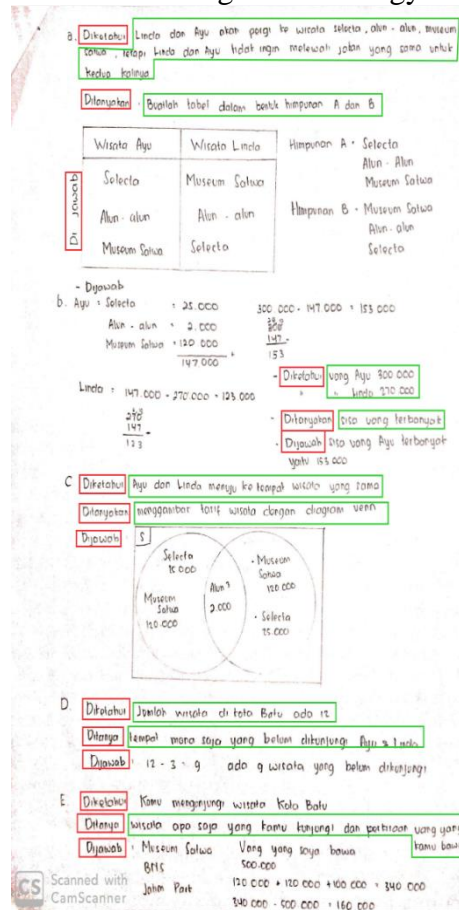 a. Diketahui Linda dan Ayu akan pergi ke wisata selecta, alun - alun, museum
satwa, tetapi Linda dan Ayu tidak ingin melewati jalan yang sama untuk
kedua kalinya
Ditanyakan : Buatlah tabel dalam bentuk himpunan A dan B
Di jawab
Wisata Ayu Wisata Linda
Selecta Museum Satwa
Alun - alun Alun - alun
Museum Satwa Selecta
Himpunan A : Selecta
Alun - Alun
Museum Satwa
Himpunan B : Museum Satwa
Alun - alun
Selecta
- Dijawab
b. Ayu : Selecta : 25.000
Alun - alun : 2.000
Museum Satwa : 120 000 +
147000
300 000 - 147 000 = 153 000
300
147 -
153
Linda = 147.000 - 270.000 = 123.000
270
147 -
123
- Diketahui uang Ayu 300 000
" " Linda 270.000
- Ditanyakan sisa uang terbanyak
- Dijawab sisa uang Ayu terbanyak
yaitu 153.000
C Diketahui Ayu dan Linda menuju ke tempat wisata yang sama
Ditanyakan menggambar tarif wisata dengan diagram venn
Dijawab
S
Selecta
Museum
Satwa
120.000
Alun²
2.000
- Museum
Satwa
120 000
- Selecta
25.000
D. Diketahui Jumlah wisata di kota Batu ada 12
Ditanya tempat mana saja yang belum dikunjungi Ayu & Linda
Dijawab : 12 - 3 = 9 ada 9 wisata yang belum dikunjungi
E. Diketahui Kamu mengunjungi wisata Kota Batu
Ditanya wisata apa saja yang kamu kunjungi dan perkiraan uang yang
kamu bawa
Dijawab : Museum Satwa Uang yang saya bawa
BNS 500.000
Jatim Park 120 000 + 120 000 + 100 000 = 340 000
340 000 - 500 000 = 160 000
CS Scanned with
CamScanner